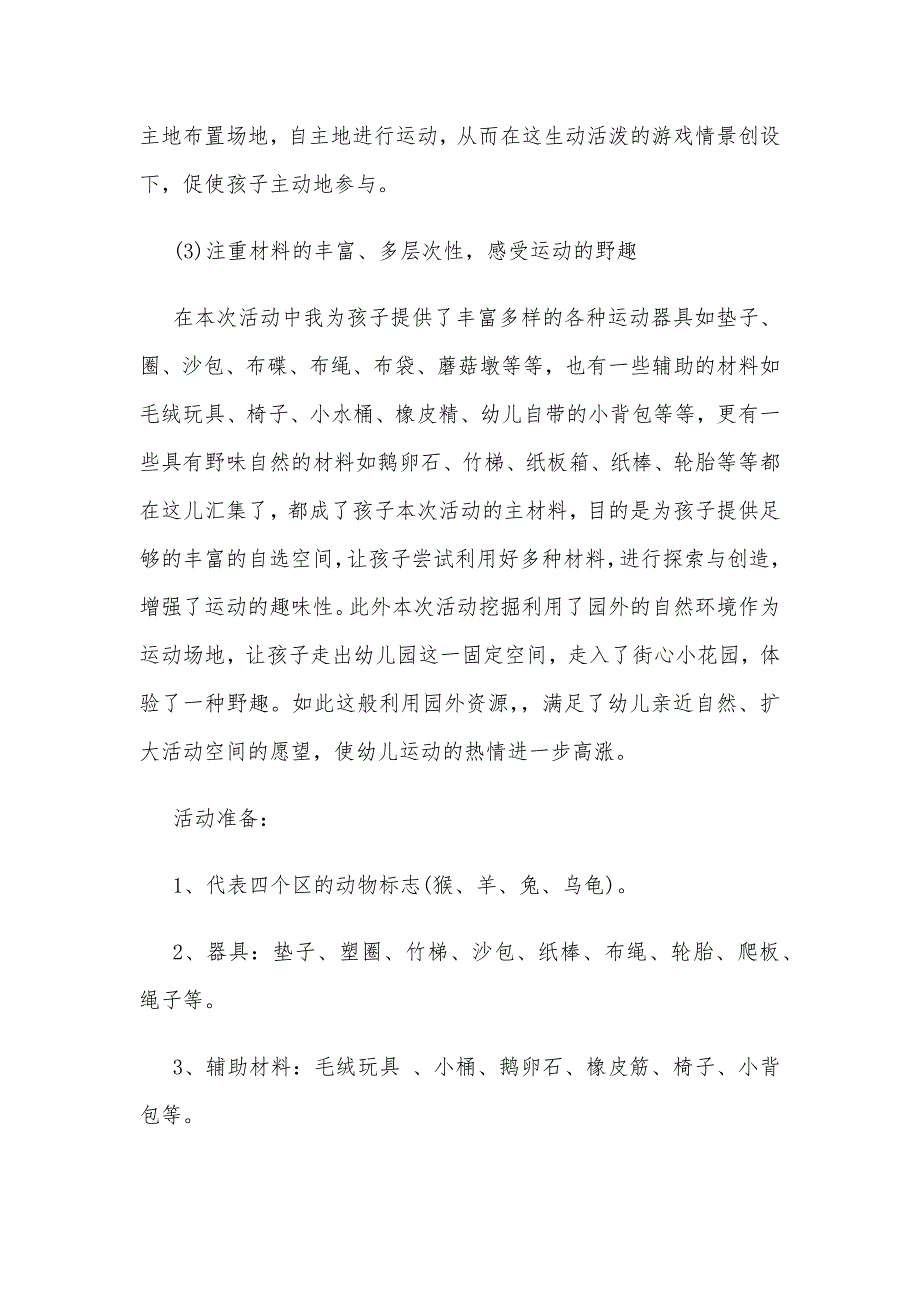 主地布置场地，自主地进行运动，从而在这生动活泼的游戏情景创设
下，促使孩子主动地参与。
(3)注重材料的丰富、多层次性，感受运动的野趣
在本次活动中我为孩子提供了丰富多样的各种运动器具如垫子、
圈、沙包、布碟、布绳、布袋、蘑菇墩等等，也有一些辅助的材料如
毛绒玩具、椅子、小水桶、橡皮精、幼儿自带的小背包等等，更有一
些具有野味自然的材料如鹅卵石、竹梯、纸板箱、纸棒、轮胎等等都
在这儿汇集了，都成了孩子本次活动的主材料，目的是为孩子提供足
够的丰富的自选空间，让孩子尝试利用好多种材料，进行探索与创造，
增强了运动的趣味性。此外本次活动挖掘利用了园外的自然环境作为
运动场地，让孩子走出幼儿园这一固定空间，走入了街心小花园，体
验了一种野趣。如此这般利用园外资源，，满足了幼儿亲近自然、扩
大活动空间的愿望，使幼儿运动的热情进一步高涨。
活动准备：
1、代表四个区的动物标志(猴、羊、兔、乌龟)。
2、器具：垫子、塑圈、竹梯、沙包、纸棒、布绳、轮胎、爬板、
绳子等。
3、辅助材料：毛绒玩具 、小桶、鹅卵石、橡皮筋、椅子、小背
包等。